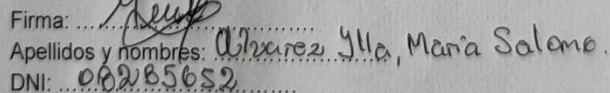 Firma:
Apellidos y nombres: Alvarez Ylla, Maria Salome.
DNI: 08285652